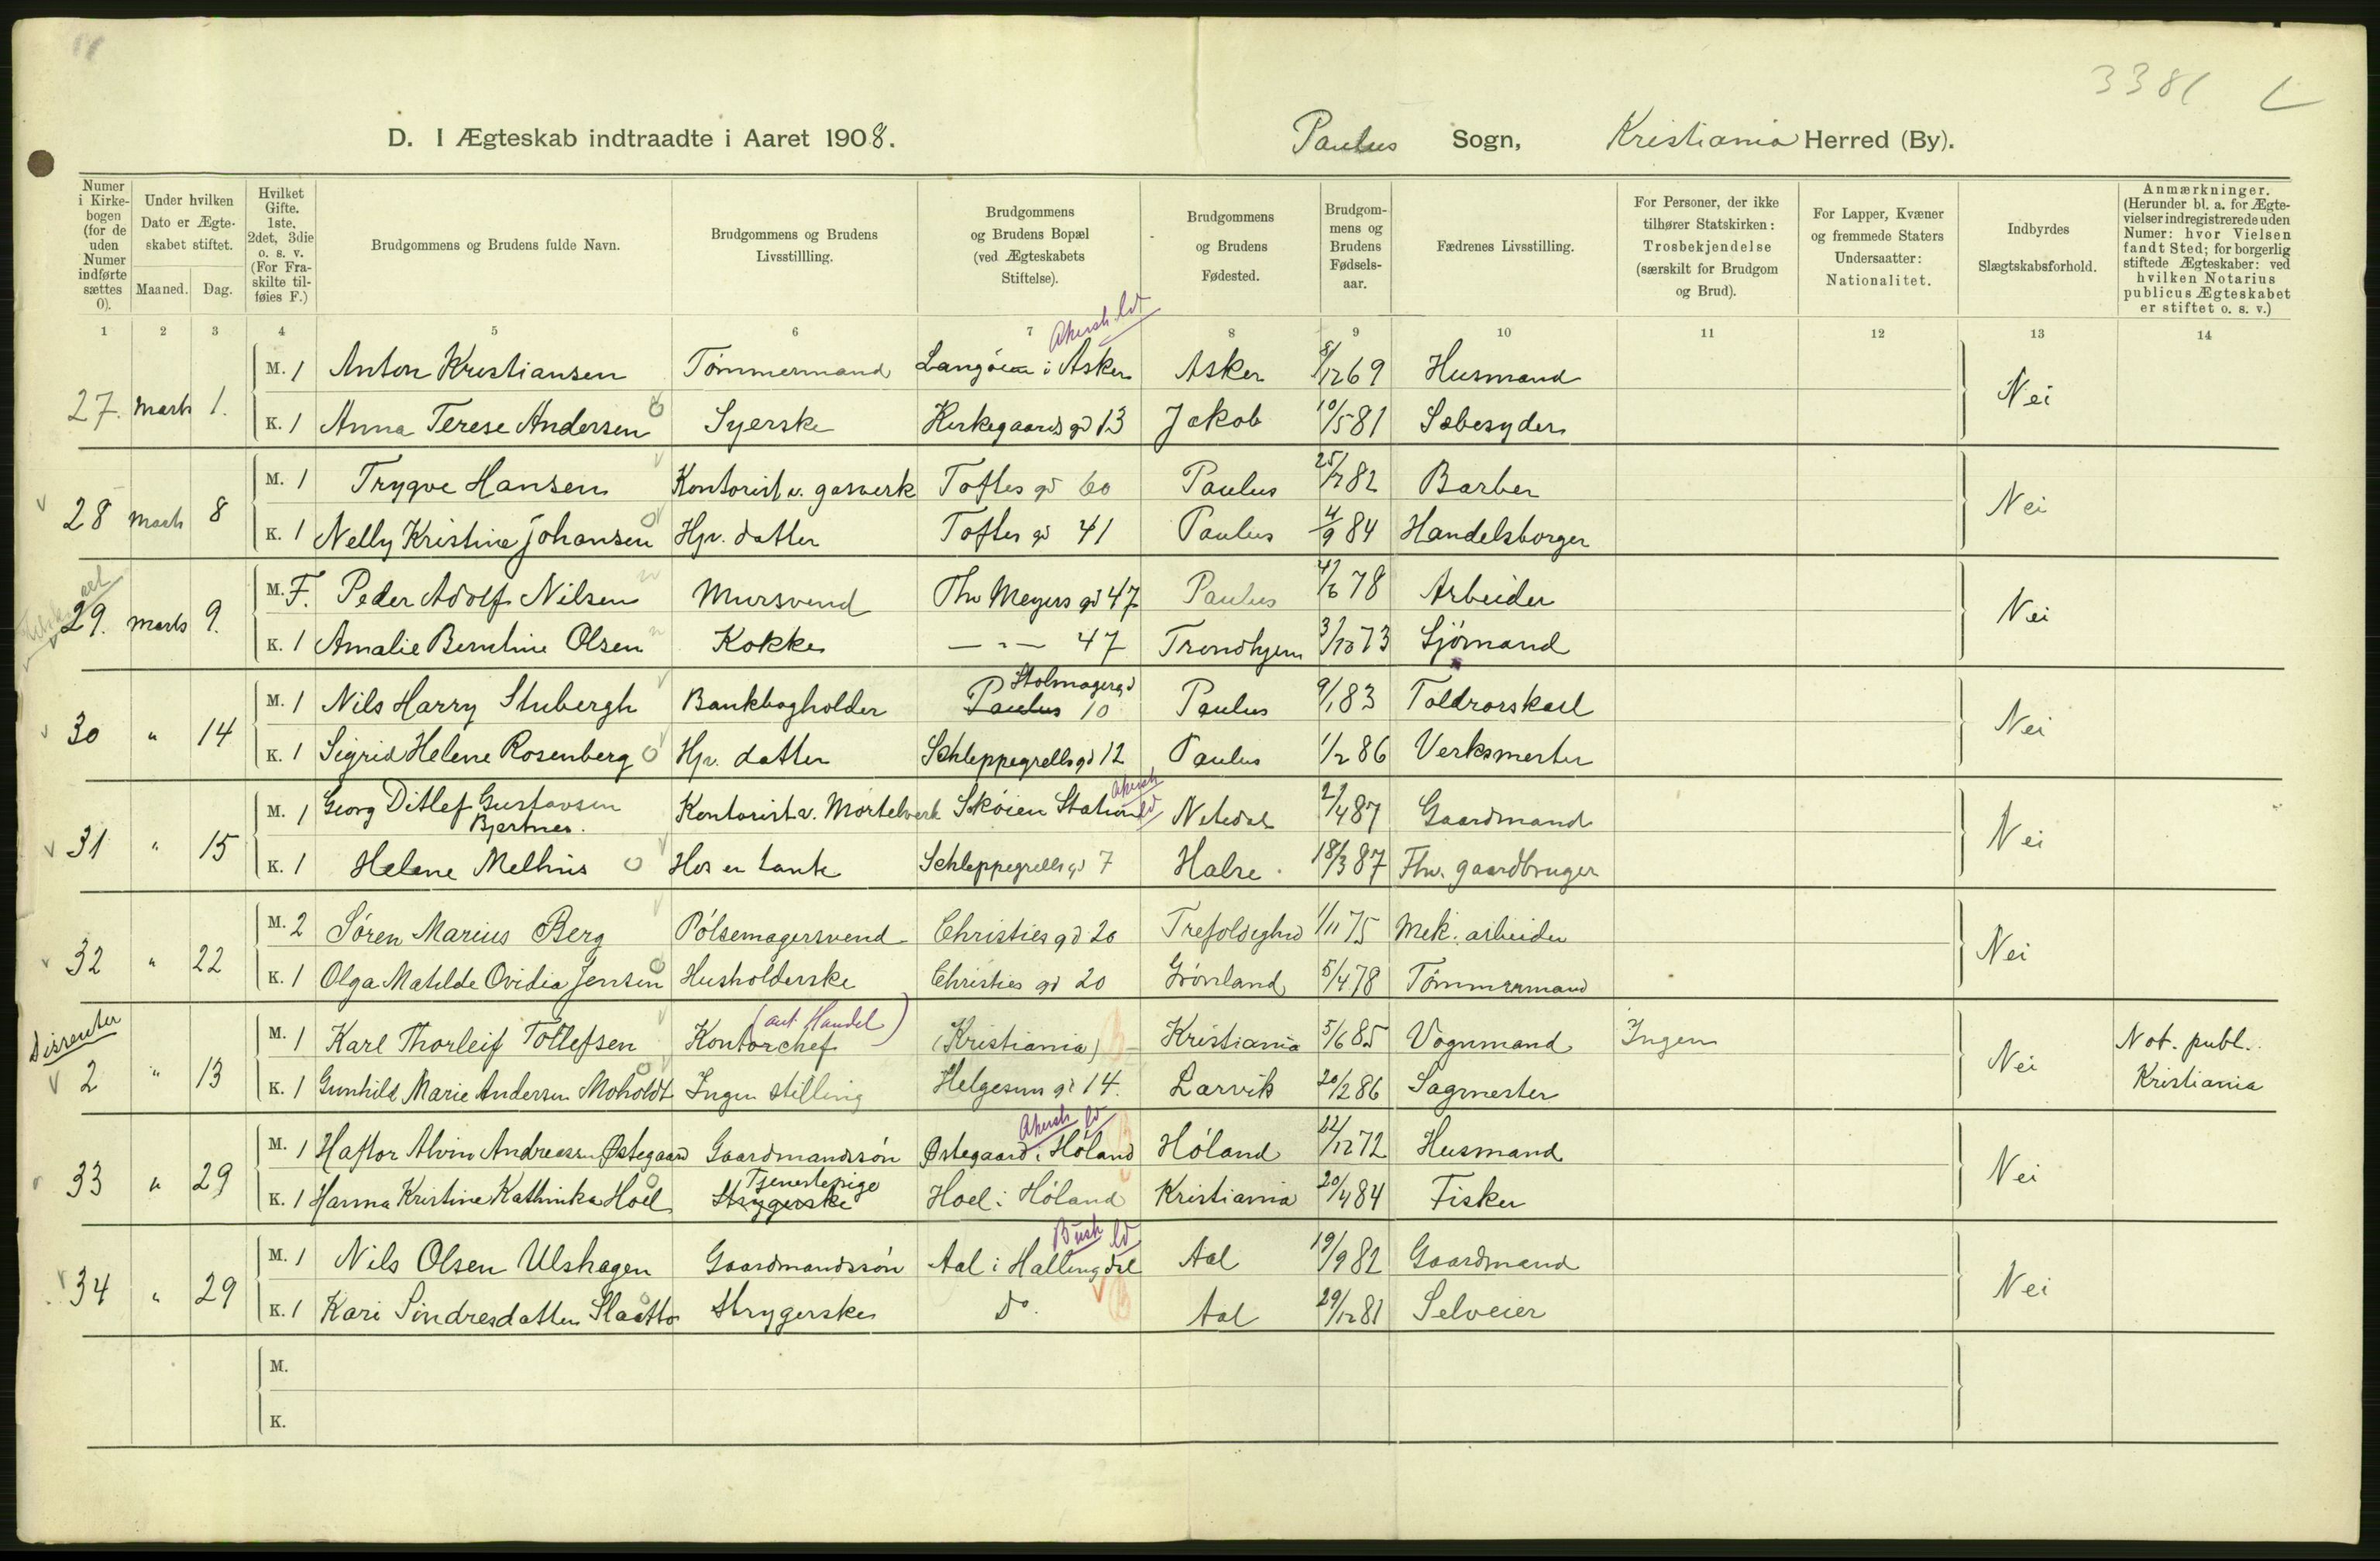 3381
D. I Ægteskab indtraadte i Aaret 1908. Paulus Sogn, Kristiania Herred (By).
Numer i Kirkebogen (for de uden Numer indførte sættes 0).
Under hvilken Dato er Ægteskabet stiftet.
Maaned. Dag.
Hvilket Gifte. 1ste, 2det, 3die o. s. v. (For Fraskilte tilføies F.)
Brudgommens og Brudens fulde Navn.
Brudgommens og Brudens Livsstillling.
Brudgommens og Brudens Bopæl (ved Ægteskabets Stiftelse).
Brudgommens og Brudens Fødested.
Brudgommens og Brudens Fødselsaar.
Fædrenes Livsstilling.
For Personer, der ikke tilhører Statskirken: Trosbekjendelse (særskilt for Brudgom og Brud).
For Lapper, Kvæner og fremmede Staters Undersaatter: Nationalitet.
Indbyrdes Slægtskabsforhold.
Anmærkninger. (Herunder bl. a. for Ægtevielser indregistrerede uden Numer: hvor Vielsen fandt Sted; for borgerlig stiftede Ægteskaber: ved hvilken Notarius publicus Ægteskabet er stiftet o. s. v.)
1 2 3 4 5 6 7 8 9 10 11 12 13 14
Akersh. ld
M. 1 Anton Kristiansen Tømmermand Langøien i Asker Asker 8/12 69 Husmand
27. Marts 1. Nei
K. 1 Anna Terese Andersen Syerske Kirkegaards gd 13 Jakob 10/5 81 Sæbesyder
M. 1 Trygve Hansen Kontorist v. gasverk Toftes gd 60 Paulus 82 Barber
28 Marts 8 Nei
K. 1 Nelly Kristine Johansen Hjv. datter Toftes gd 41 Paulus 4/9 84 Handelsborger
M. F. Peder Adolf Nilsen Mursvend Thv Meyers gd 47 Paulus 78 Arbeider
29. Marts 9. Nei
K. 1 Amalie Berntine Olsen Kokke — " — 47 Trondhjem 3/10 73 Sjømand
Stolmagergd
M. 1 Nils Harry Stubergh Bankbogholder Paulus 10 Paulus 9/1 83 Toldrorskarl
30 " 14 Nei
K. 1 Sigrid Helene Rosenberg Hjv. datter Schleppegrells gd 12 Paulus 1/2 86 Verksmester
Akersh ld
M. 1 Georg Ditlef Gustavsen Bjertnes. Kontorist v. Mørtelverk Skøien Station Nitedal 2/4 87 Gaardmand
31 " 15 Nei
K. 1 Helene Melhus Hos en tante Schleppegrells gd 7 Halse 18/3 87 Fhv. gaardbruger
M. 2 Søren Marius Berg Pølsemagersvend Christies gd 20 Trefoldighed 1/11 75 Mek. arbeider
32 " 22 Nei
K. 1 Olga Matilde Ovidia Jensen Husholderske Christies gd 20 Grønland 5/4 78 Tømmermand
Dissenter
(aut. Handel)
M. 1 Karl Thorleif Tollefsen Kontorchef (Kristiania) Kristiania 5/6 85 Vognmand Ingen Not. publ.
2 " 13 Nei
K. 1 Gunhild Marie Andersen Moholdt Ingen stilling Helgesens gd 14. Larvik 20/2 86 Sagmester Kristiania
Akersh ld
M. 1 Haftor Alvin Andreassen Østegaard Gaardmandssøn Østegaard i Høland Høland 22/12 72 Husmand
33 " 29 Nei
Tjenestepige
K. 1 Hanna Kristine Kathinka Hoel Strygerske Hoel i Høland Kristiania 20/4 84 Fisker
Busk ld
M. 1 Nils Olsen Ulshagen Gaardmandssøn Aal i Hallingdal Aal 19/9 82 Gaardmand
34 " 29 Nei
K. 1 Kari Sindresdatter Slaatto Strygerske Do. Aal 29/12 81 Selveier
M.
K.